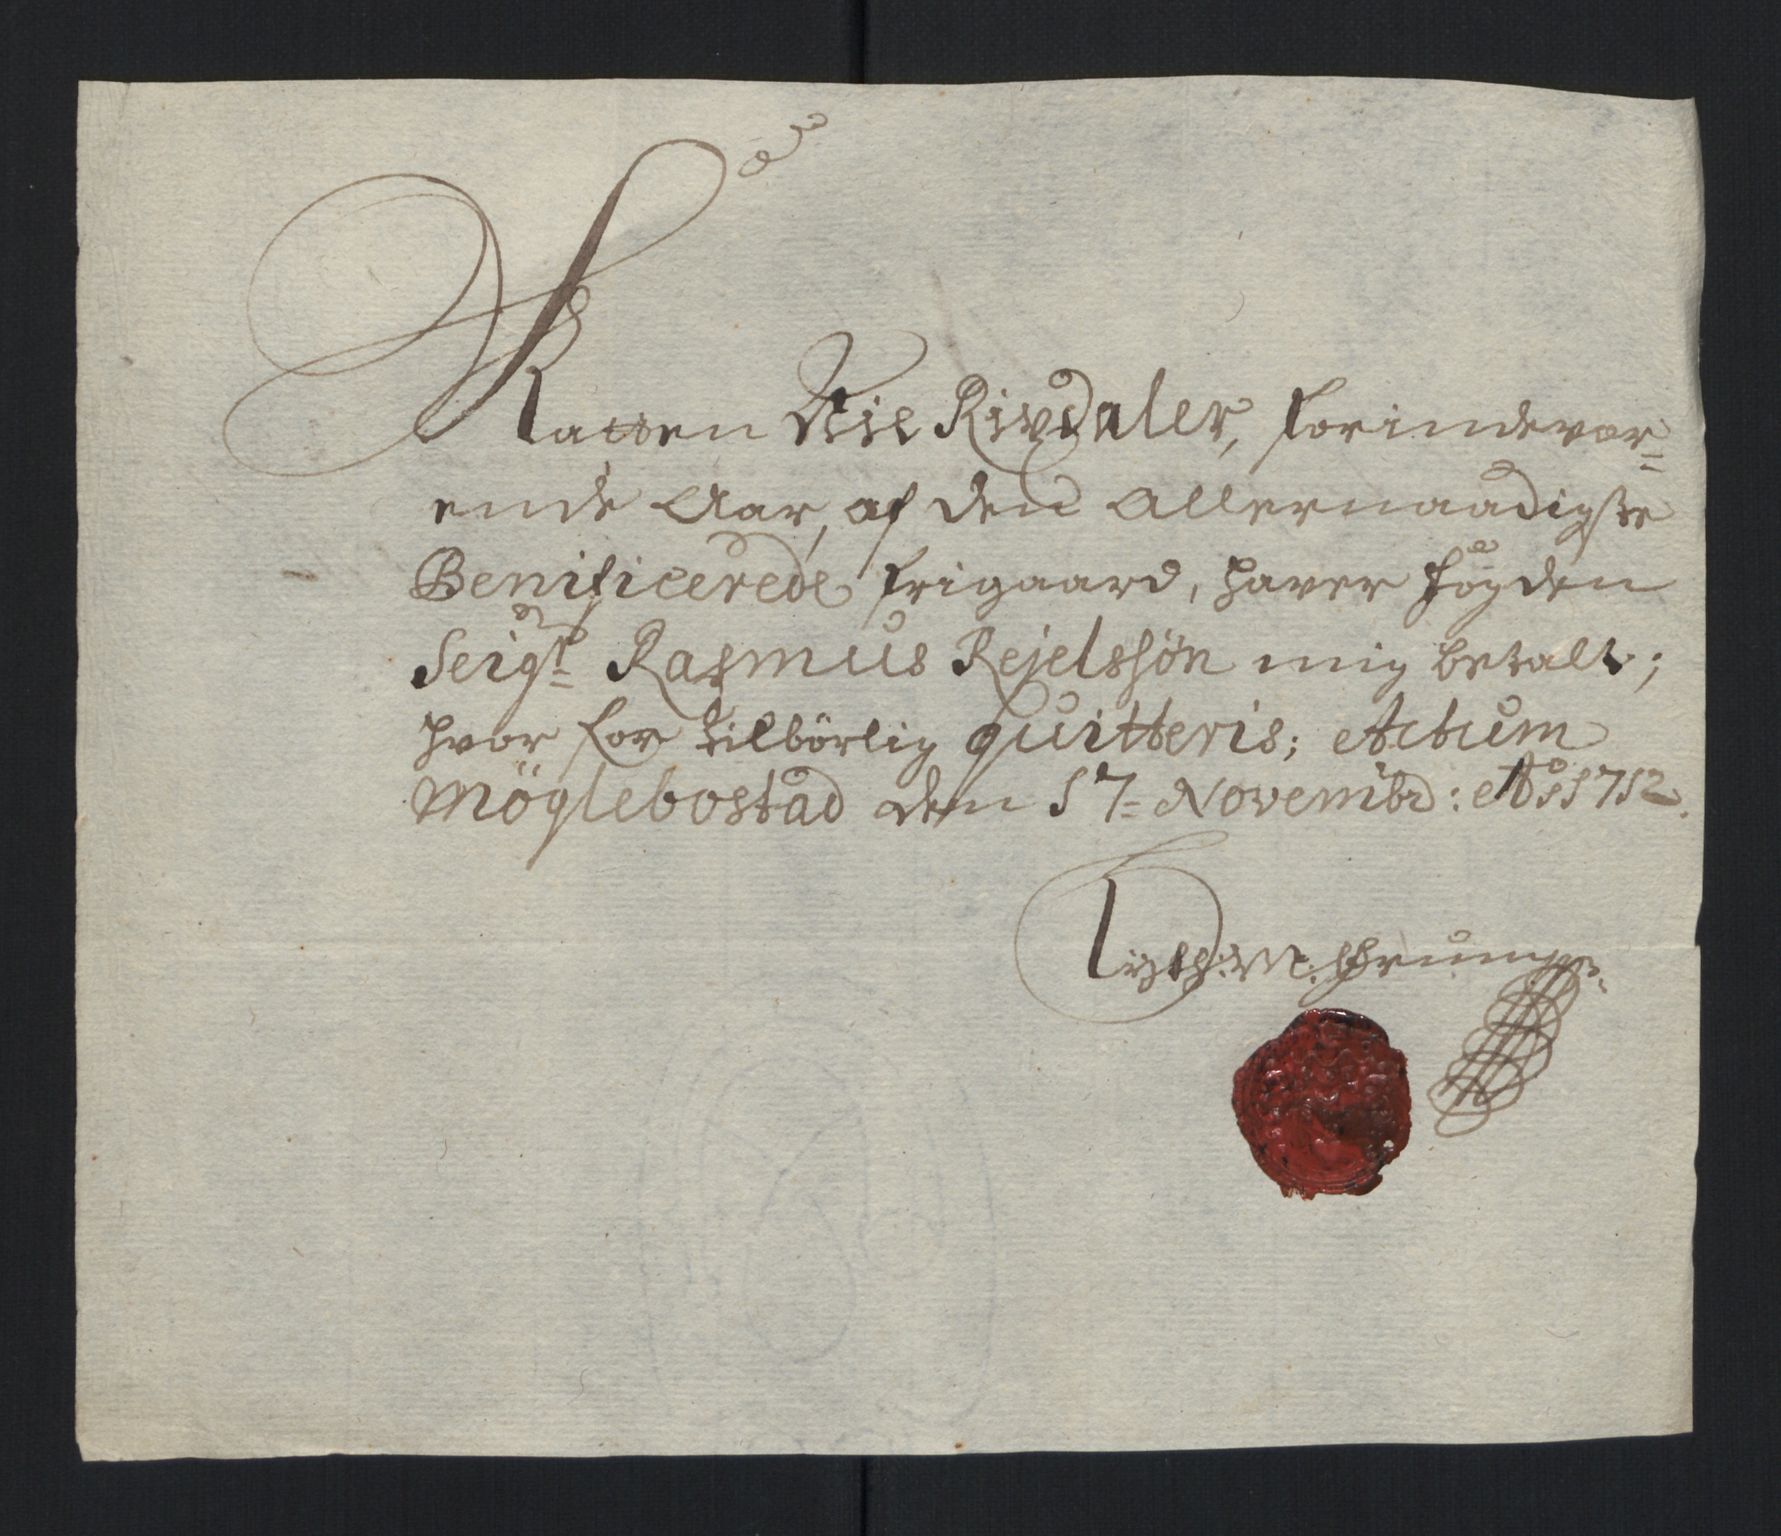 Skatten Ni Rixdaler, for indevær=
ende Aar, af den Allernaadigste
Benificerede frigaard, haver fogden
Seigr Rasmus Kejelssøn mig betalt;
hvor for tilbörlig quitteris; Actum
Möglebostad den 17= Novembr: Ao: 1712.